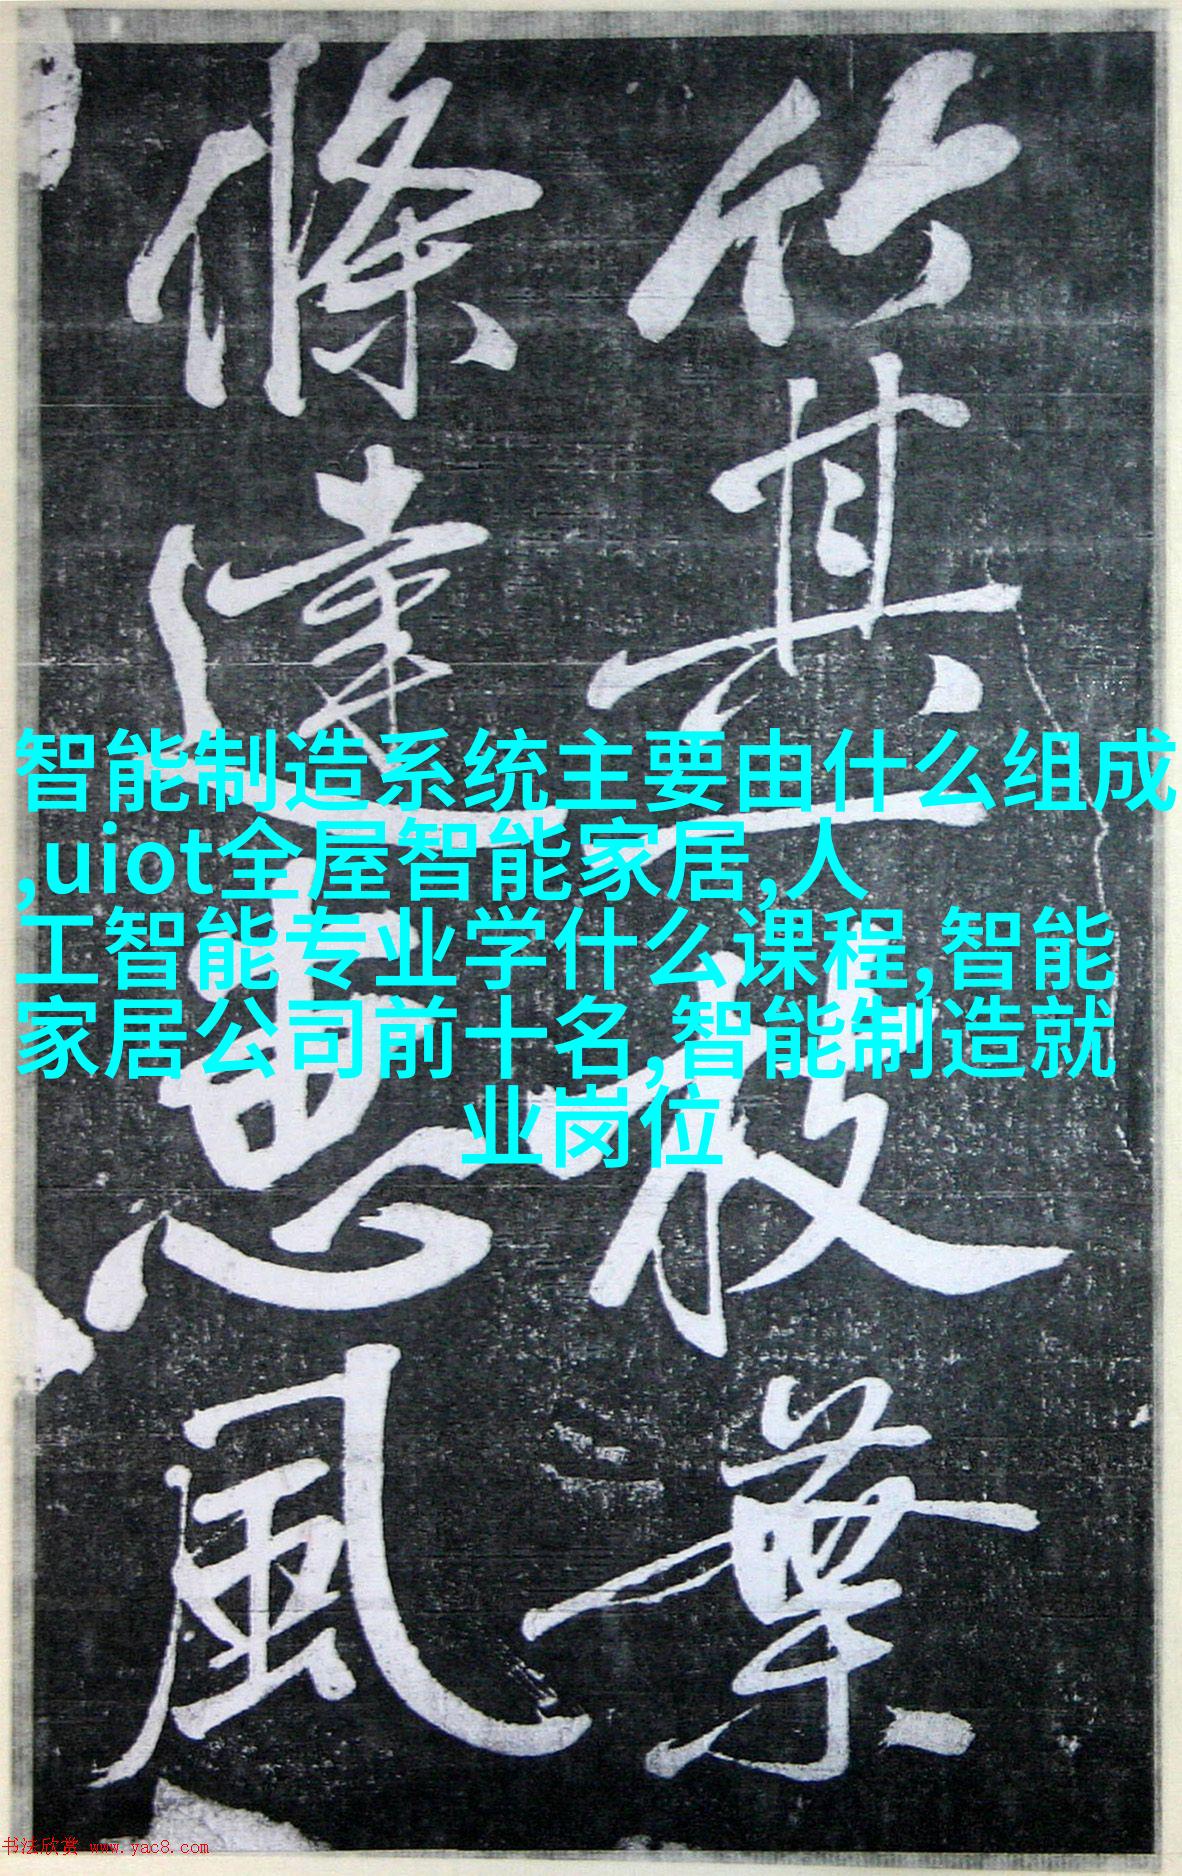 竹其枝葉
條達惠風
智能制造系统主要由什么组成
,uiot全屋智能家居,人
工智能专业学什么课程,智能
家居公司前十名,智能制造就
业岗位
书法欣赏 www.yac8.com